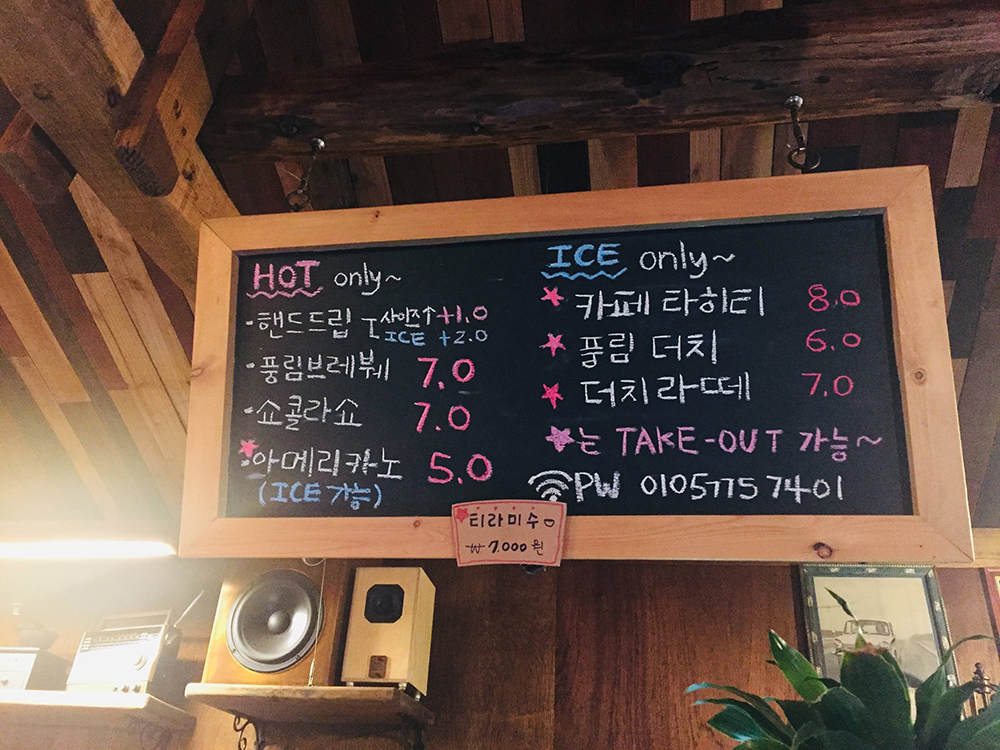 HOT only~
·핸드드립 사이즈↑+1.0
ICE +2.0
·풍림브레붸 7.0
·쇼콜라쇼 7.0
★아메리카노 5.0
(ICE 가능)
ICE only~
★카페 타히티 8.0
★풍림 더치 6.0
★더치라떼 7.0
★는 TAKE-OUT 가능~
PW 01057757401
★티라미수
₩ 7.000 원